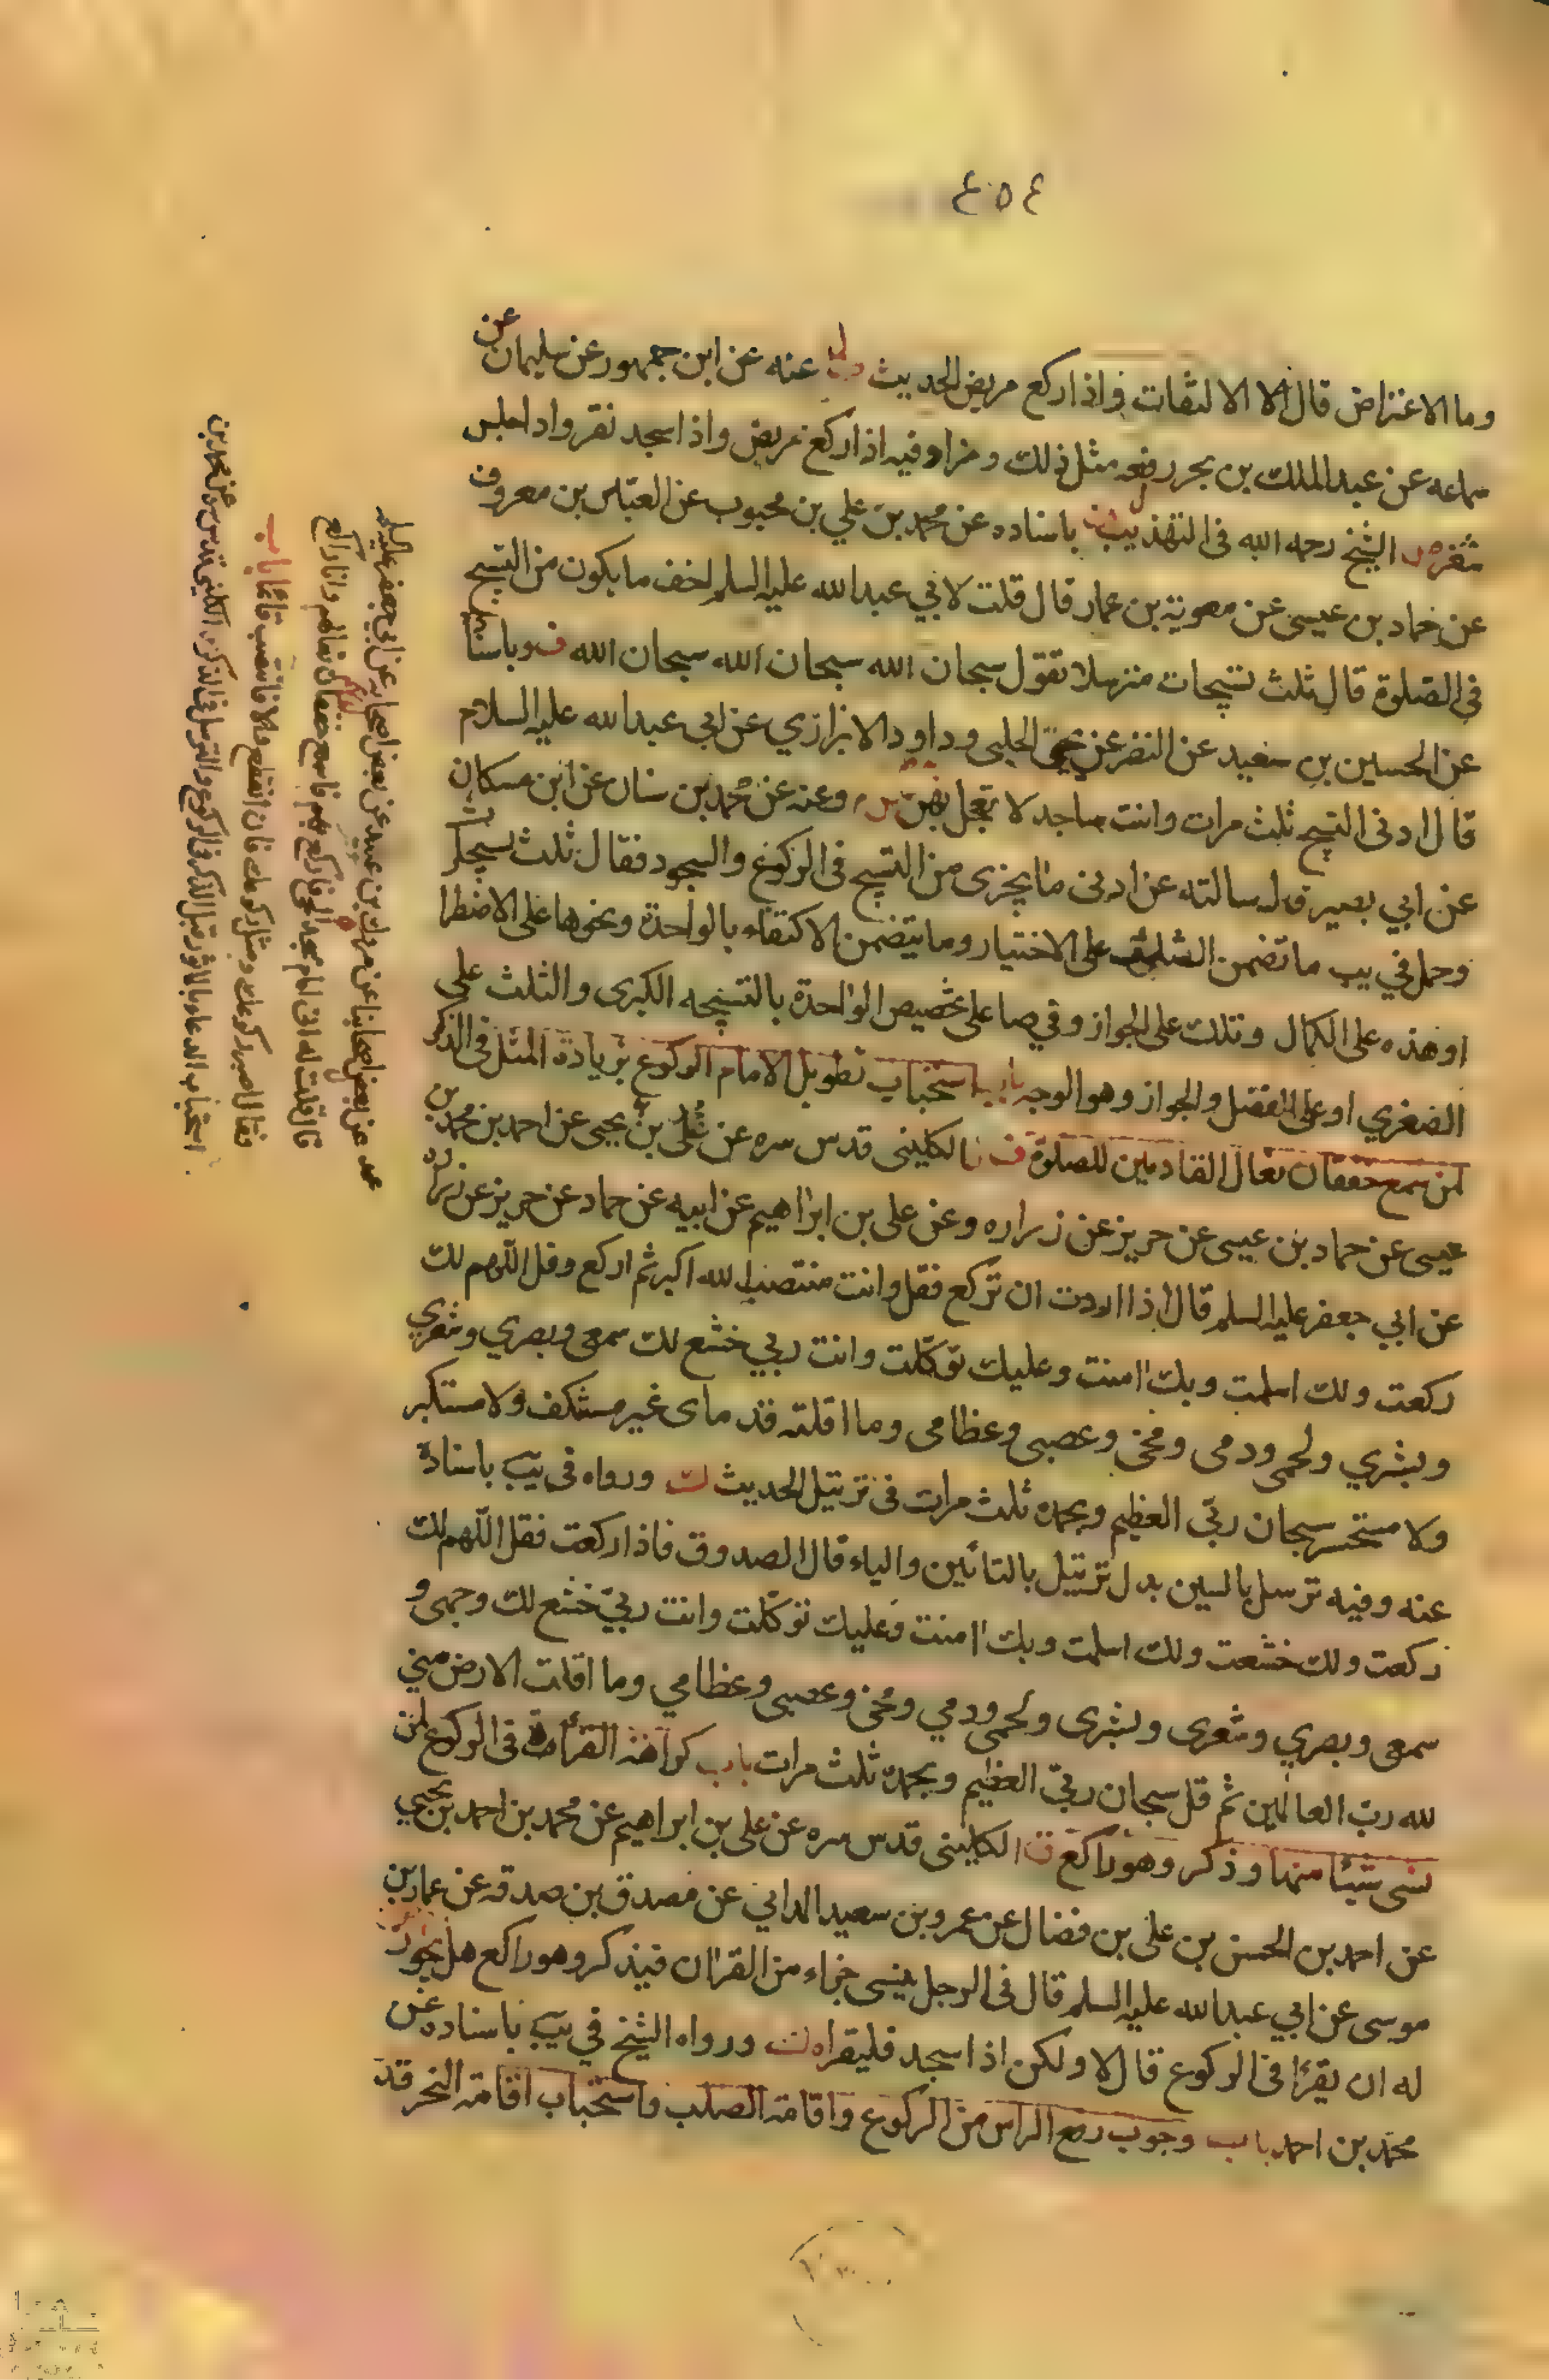 ٤٥٤
وما الاعتراض قال الا الالتفات واذا ركع مربض الحديث عنه عن ابن جمهور عن سليمان عن
سماعه عن عبد الملك بن بحر رفعه مثل ذلك وزاد فيه اذا ركع ربض واذا سجد نقر واذا جلس
شغر الشيخ رحمه الله فى التهذيب باسناده عن محمد بن علي بن محبوب عن العباس بن معروف
عن حماد بن عيسى عن معوية بن عمار قال قلت لابي عبد الله عليه السلم اخف ما يكون من التسبيح
في الصلوة قال ثلث تسبيحات مترسلا تقول سبحان الله سبحان الله سبحان الله وباسناده
عن الحسين بن سعيد عن النضر عن يحيى الحلبي وداود الابزازي عن ابي عبد الله عليه السلام
قال ادنى التسبيح ثلث مرات وانت ساجد لا تعجل بهن وعنه عن محمد بن سنان عن ابن مسكان
عن ابي بصير قال سالته عن ادنى ما يجزى من التسبيح فى الركوع والسجود فقال ثلث تسبيحات
وحمل في يب ما تضمن الثلث على الاختيار وما يتضمن الاكتفاء بالواحدة ونحوها على الاضطرار
او هذه على الكمال وتلك على الجواز وفي صا على تخصيص الواحدة بالتسبيحه الكبرى والثلث على
الصغري او على الفضل والجواز وهو الوجه باب استحباب تطويل الامام الركوع بزيادة المثل فى الذكر
لمن سمع خفقان نعال القادمين للصلوة الكليني قدس سره عن علي بن يحيى عن احمد بن محمد بن
عيسى عن حماد بن عيسى عن حريز عن زراره وعن على بن ابراهيم عن ابيه عن حماد عن حريز عن زراره
عن ابي جعفر عليه السلم قال اذا اردت ان تركع فقل وانت منتصب الله اكبر ثم اركع وقل اللهم لك
ركعت ولك اسلمت وبك امنت وعليك توكلت وانت ربي خشع لك سمعى وبصري وشعري
وبشري ولحمى ودمى ومخى وعصبى وعظامى وما اقلته قدماى غير مستنكف ولا مستكبر
ولا مستحسر سبحان ربى العظيم وبحمده ثلث مرات فى ترتيل الحديث ورواه فى يب باسناده
عنه وفيه ترسل بالسين بدل ترتيل بالتائين والياء قال الصدوق فاذا ركعت فقل اللهم لك
ركعت ولك خشعت ولك اسلمت وبك امنت وعليك توكلت وانت ربي خشع لك وجهى و
سمعى وبصري وشعرى وبشرى ولحمى ودمي ومخى وعصبى وعظامي وما اقلت الارض مني
لله رب العالمين ثم قل سبحان ربي العظيم وبحمده ثلث مرات باب كراهة القرائة فى الركوع لمن
نسى شيئا منها وذكر وهو راكع الكلينى قدس سره عن على بن ابراهيم عن محمد بن احمد بن يحيي
عن احمد بن الحسن بن على بن فضال عن عمرو بن سعيد المدايني عن مصدق بن صدقه عن عمار بن
موسى عن ابي عبد الله عليه السلم قال فى الرجل ينسى جزاء من القران فيذكر وهو راكع هل يجوز
له ان يقرا فى الركوع قال لا ولكن اذا سجد فليقراه ورواه الشيخ في يب باسناده عن
محمد بن احمد باب وجوب رفع الراس من الركوع واقامة الصلب واستحباب اقامة النحر قد
عن بعض اصحابنا عن مروك بن عبيد عن بعض اصحابه عن ابي جعفر عليه السلم
قال قلت له انى امام مسجد الحى فاركع بهم فاسمع خفقان نعالهم وانا راكع
فقال اصبر ركوعك ومثل ركوعك فان انقطع والا فانتصب قائما باب
استحباب الدعاء بالماثور قبل الذكر فى الركوع والترسل فى الذكر الكلينى قدس سره عن محمد بن